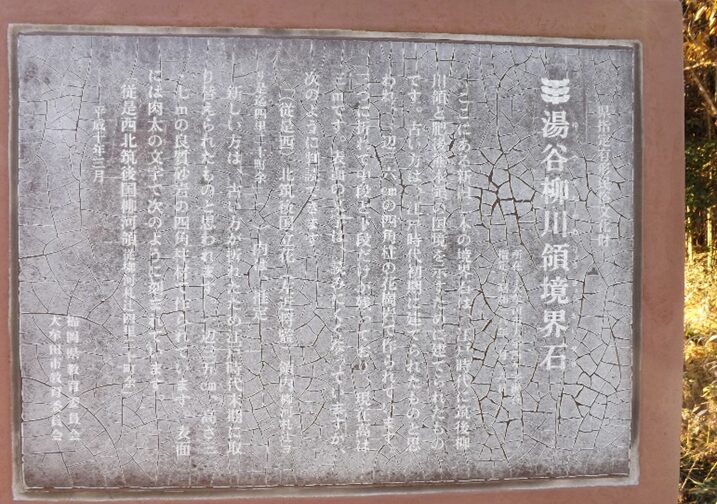 県指定有形民俗文化財
湯谷柳川領境界石
ここにある新旧二本の境界石は、江戸時代に筑後柳
川領と肥後熊本藩の国境を示すために建てられたもの
です。古い方は、江戸時代初期に建てられたものと思
われ、一辺二六㎝の四角柱の花崗岩で作られています。
二つに折れて中段と下段だけが残っており、現在高は
三mです。表面の文字は、読みにくくなっていますが、
次のように判読できます。
(従是西)北筑後国立花 左近将監 領内
( )内は 推定
新しい方は、古い方が折れたため江戸時代末期に取
り替えられたものと思われます。一辺三五㎝、高さ三
・七mの良質砂岩の四角柱材で作られています。表面
には肉太の文字で次のように刻まれています。
従是西北筑後国柳河領
平成十年三月
福岡県教育委員会
大牟田市教育委員会